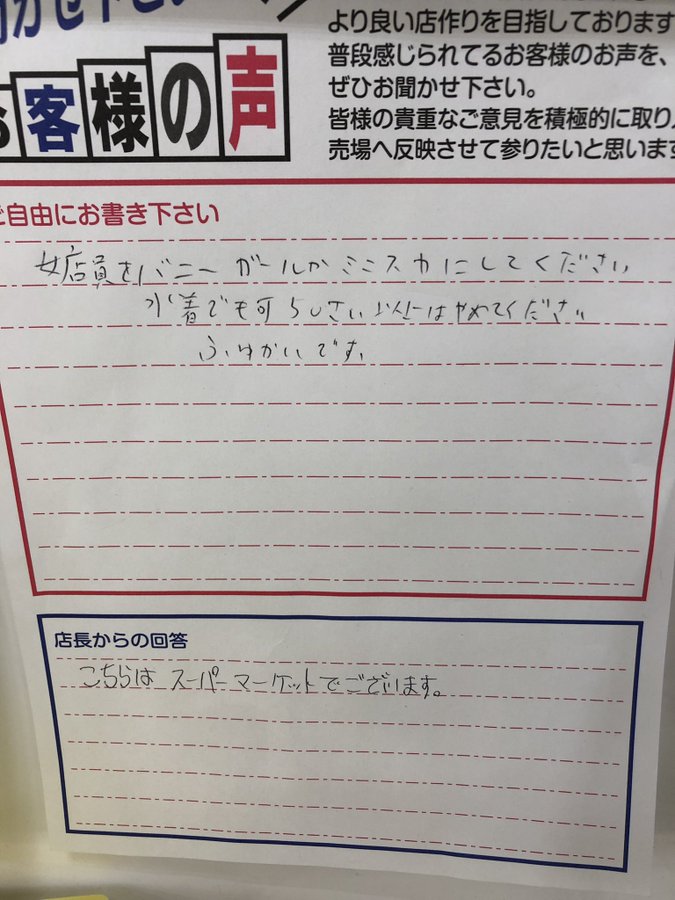 かせ下さい
お客様の声
より良い店作りを目指しております
普段感じられてるお客様のお声を、
ぜひお聞かせ下さい。
皆様の貴重なご意見を積極的に取り
売場へ反映させて参りたいと思います
ご自由にお書き下さい
女店員をバニーガールかミニスカにしてください
水着でも可 50さい以上はやめてください
ふゆかいです。
店長からの回答
こちらはスーパーマーケットでございます。